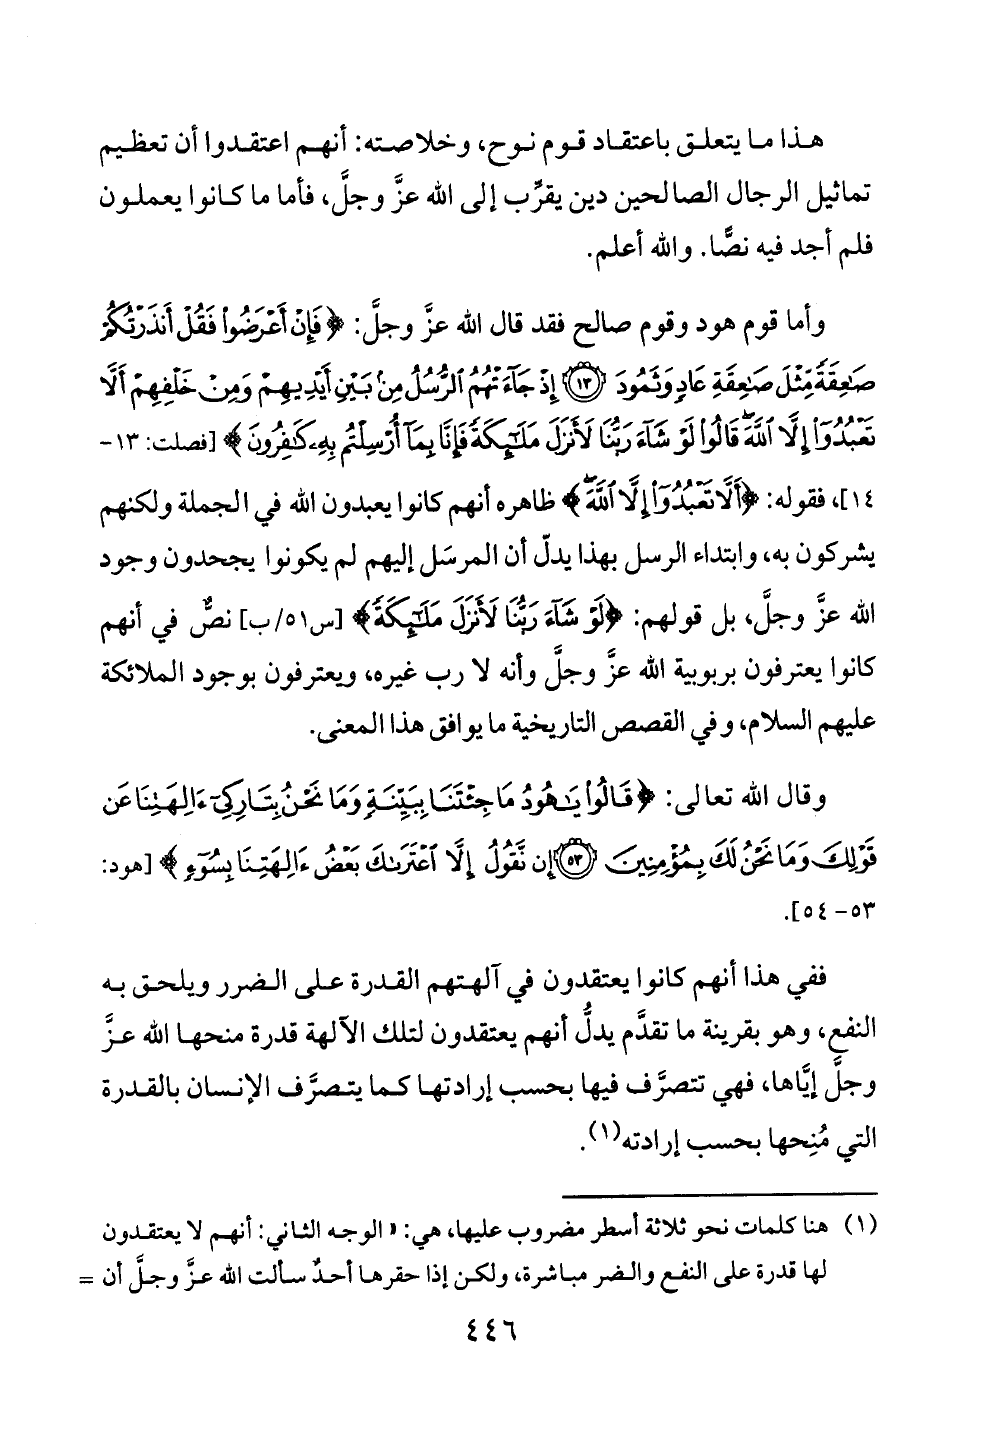 هذا ما يتعلق باعتقاد قوم نوح، وخلاصته: أنهم اعتقدوا أن تعظيم
تماثيل الرجال الصالحين دين يقرِّب إلى الله عزَّ وجلَّ، فأما ما كانوا يعملون
فلم أجد فيه نصًّا. والله أعلم.
وأما قوم هود وقوم صالح فقد قال الله عزَّ وجلَّ: ﴿فَإِنۡ أَعۡرَضُواْ فَقُلۡ أَنذَرۡتُكُمۡ
صَٰعِقَةٗ مِّثۡلَ صَٰعِقَةِ عَادٖ وَثَمُودَ ۝١٣ إِذۡ جَآءَتۡهُمُ ٱلرُّسُلُ مِنۢ بَيۡنِ أَيۡدِيهِمۡ وَمِنۡ خَلۡفِهِمۡ أَلَّا
تَعۡبُدُوٓاْ إِلَّا ٱللَّهَۖ قَالُواْ لَوۡ شَآءَ رَبُّنَا لَأَنزَلَ مَلَٰٓئِكَةٗ فَإِنَّا بِمَآ أُرۡسِلۡتُم بِهِۦ كَٰفِرُونَ﴾ [فصلت: ١٣-
١٤]، فقوله: ﴿أَلَّا تَعۡبُدُوٓاْ إِلَّا ٱللَّهَۖ﴾ ظاهره أنهم كانوا يعبدون الله في الجملة ولكنهم
يشركون به، وابتداء الرسل بهذا يدلّ أن المرسَل إليهم لم يكونوا يجحدون وجود
الله عزَّ وجلَّ، بل قولهم: ﴿لَوۡ شَآءَ رَبُّنَا لَأَنزَلَ مَلَٰٓئِكَةٗ﴾ [س٥١/ب] نصٌّ في أنهم
كانوا يعترفون بربوبية الله عزَّ وجلَّ وأنه لا رب غيره، ويعترفون بوجود الملائكة
عليهم السلام، وفي القصص التاريخية ما يوافق هذا المعنى.
وقال الله تعالى: ﴿قَالُواْ يَٰهُودُ مَا جِئۡتَنَا بِبَيِّنَةٖ وَمَا نَحۡنُ بِتَارِكِيٓ ءَالِهَتِنَا عَن
قَوۡلِكَ وَمَا نَحۡنُ لَكَ بِمُؤۡمِنِينَ ۝٥٣ إِن نَّقُولُ إِلَّا ٱعۡتَرَىٰكَ بَعۡضُ ءَالِهَتِنَا بِسُوٓءٖ﴾ [هود:
٥٣-٥٤].
ففي هذا أنهم كانوا يعتقدون في آلهتهم القدرة على الضرر ويلحق به
النفع، وهو بقرينة ما تقدَّم يدلُّ أنهم يعتقدون لتلك الآلهة قدرة منحها الله عزَّ
وجلَّ إيَّاها، فهي تتصرَّف فيها بحسب إرادتها كما يتصرَّف الإنسان بالقدرة
التي مُنِحها بحسب إرادته(١).
(١) هنا كلمات نحو ثلاثة أسطر مضروب عليها، هي: «الوجه الثاني: أنهم لا يعتقدون
لها قدرة على النفع والضر مباشرة، ولكن إذا حقرها أحدٌ سألت الله عزَّ وجلَّ أن =
٤٤٦